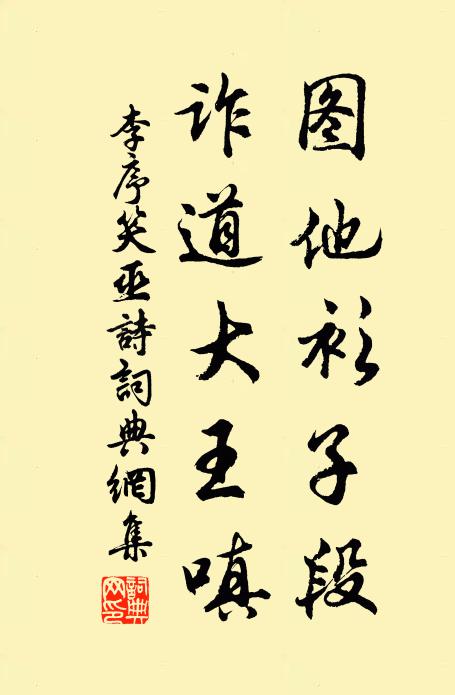 图他衫子段
诈道大王嗔
李序笑巫詩詞典網集
詞典网印